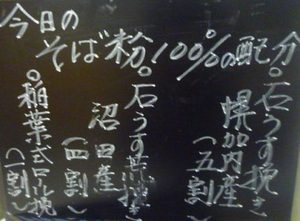 今日の
そば粉100%の配分
○石うす挽き
幌加内産
(五割)
○石うす荒挽き
沼田産
(四割)
○稲葉式ロール挽
(一割)